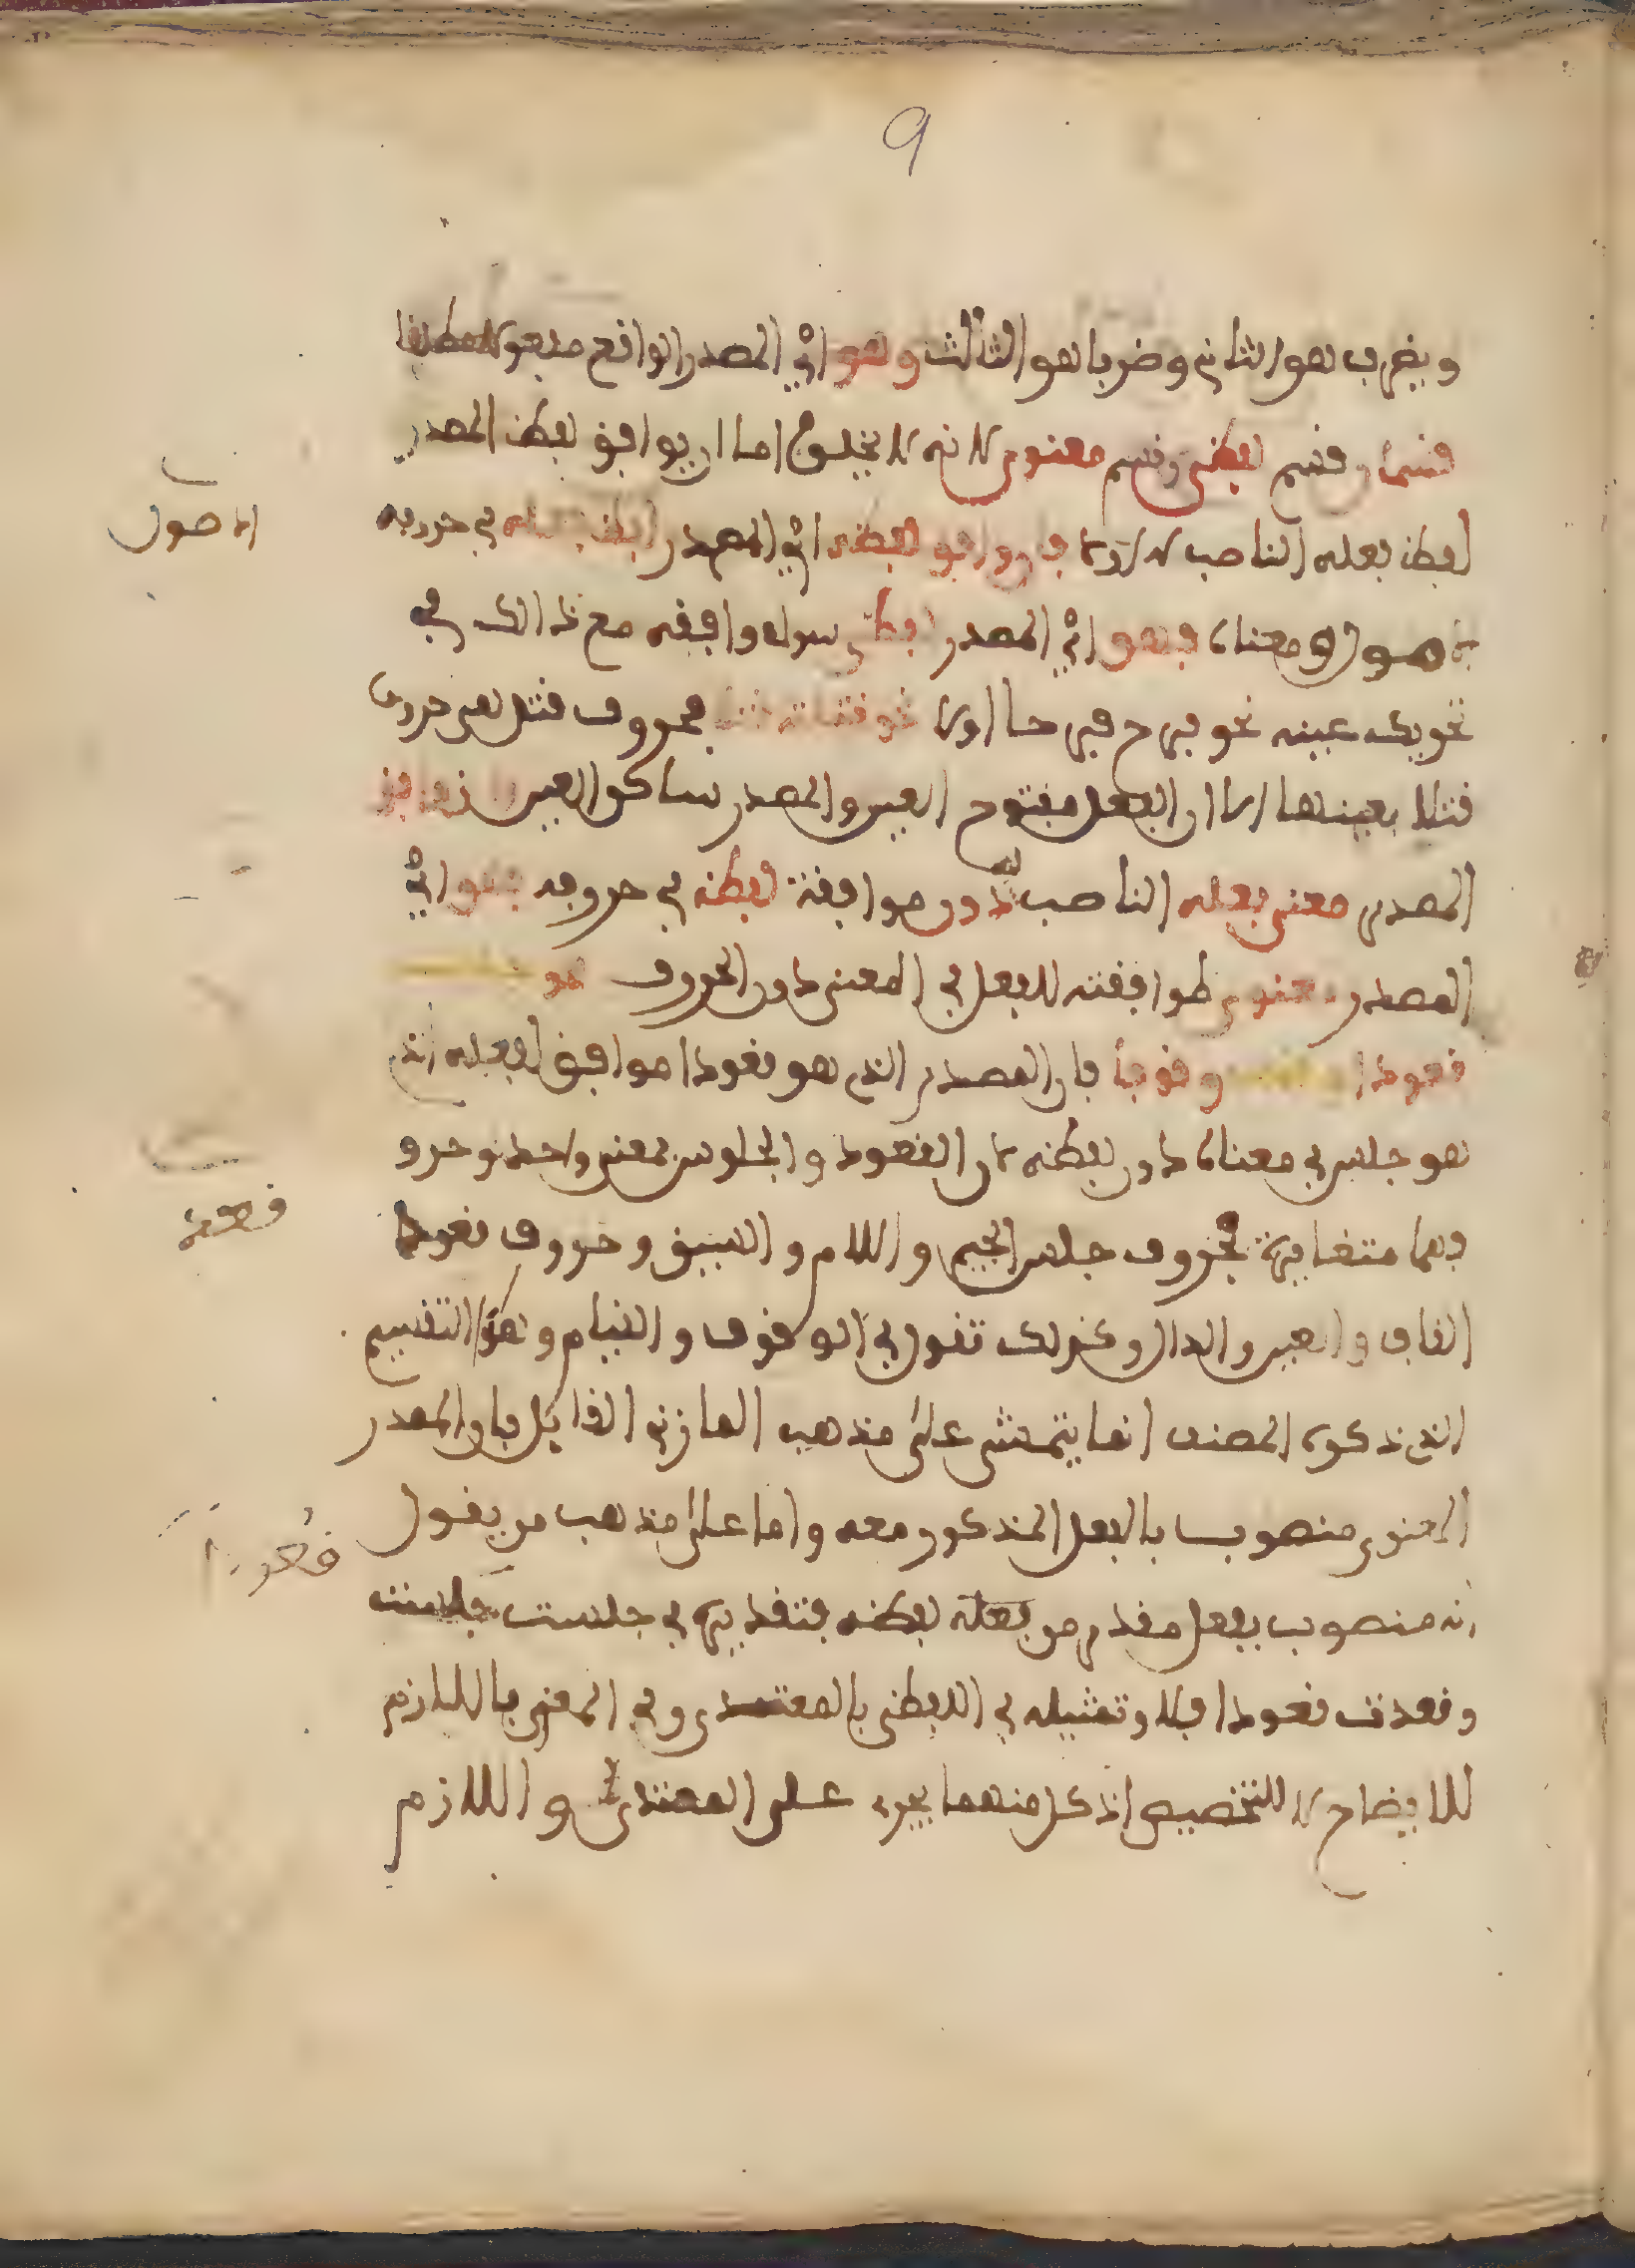 9
ويضرب هو الثاني وضربا هو الثالث وهو اي المصدر الواقع مفعولا مطلقا
قسمان قسم لفظي وقسم معنوي لانه لا يخلوا اما ان يوافق لفظ المصدر
لفظ فعله الناصب له اولا فان وافق لفظه اي المصدر لفظ فعله في حروفه
الاصول
الاصول ومعناه فهو اي المصدر لفظي سواء وافقه مع ذالك في
تحريك عينه نحو فرح فرحا اولا نحو قتلته قتلا فحروف قتل هي حروف
قتلا بعينها الا ان الفعل مفتوح العين والمصدر ساكن العين وان وافق
المصدر معنى فعله الناصب له دون موافقة لفظه في حروفه فهو اي
المصدر معنوي لموافقته للفعل في المعنى دون الحروف نحو
قعودا وقوفا فان المصدر الذي هو قعودا موافق لفعله الذي
هو جلس في معناه دون لفظه لان القعود والجلوس بمعنى واحد وحرو
فهما متغايرة فحروف جلس الجيم واللام والسين وحروف قعود
القاف والعين والدال وكذلك تقول في الوقوف والقيام وهذا التقسيم
الذي ذكره المصنف انما يتمشى على مذهب المازني القايل بان المصدر
المعنوي منصوب بالفعل المذكور معه واما على مذهب من يقول
انه منصوب بفعل مقدر من فعله لفظه فتقديره في جلست جلست
وقعدت قعودا فلا وتمثيله في اللفظي بالمتعدي وفي المعنوي باللازم
للايضاح لا للتخصيص اذ كل منهما يجري على المتعدي واللازم